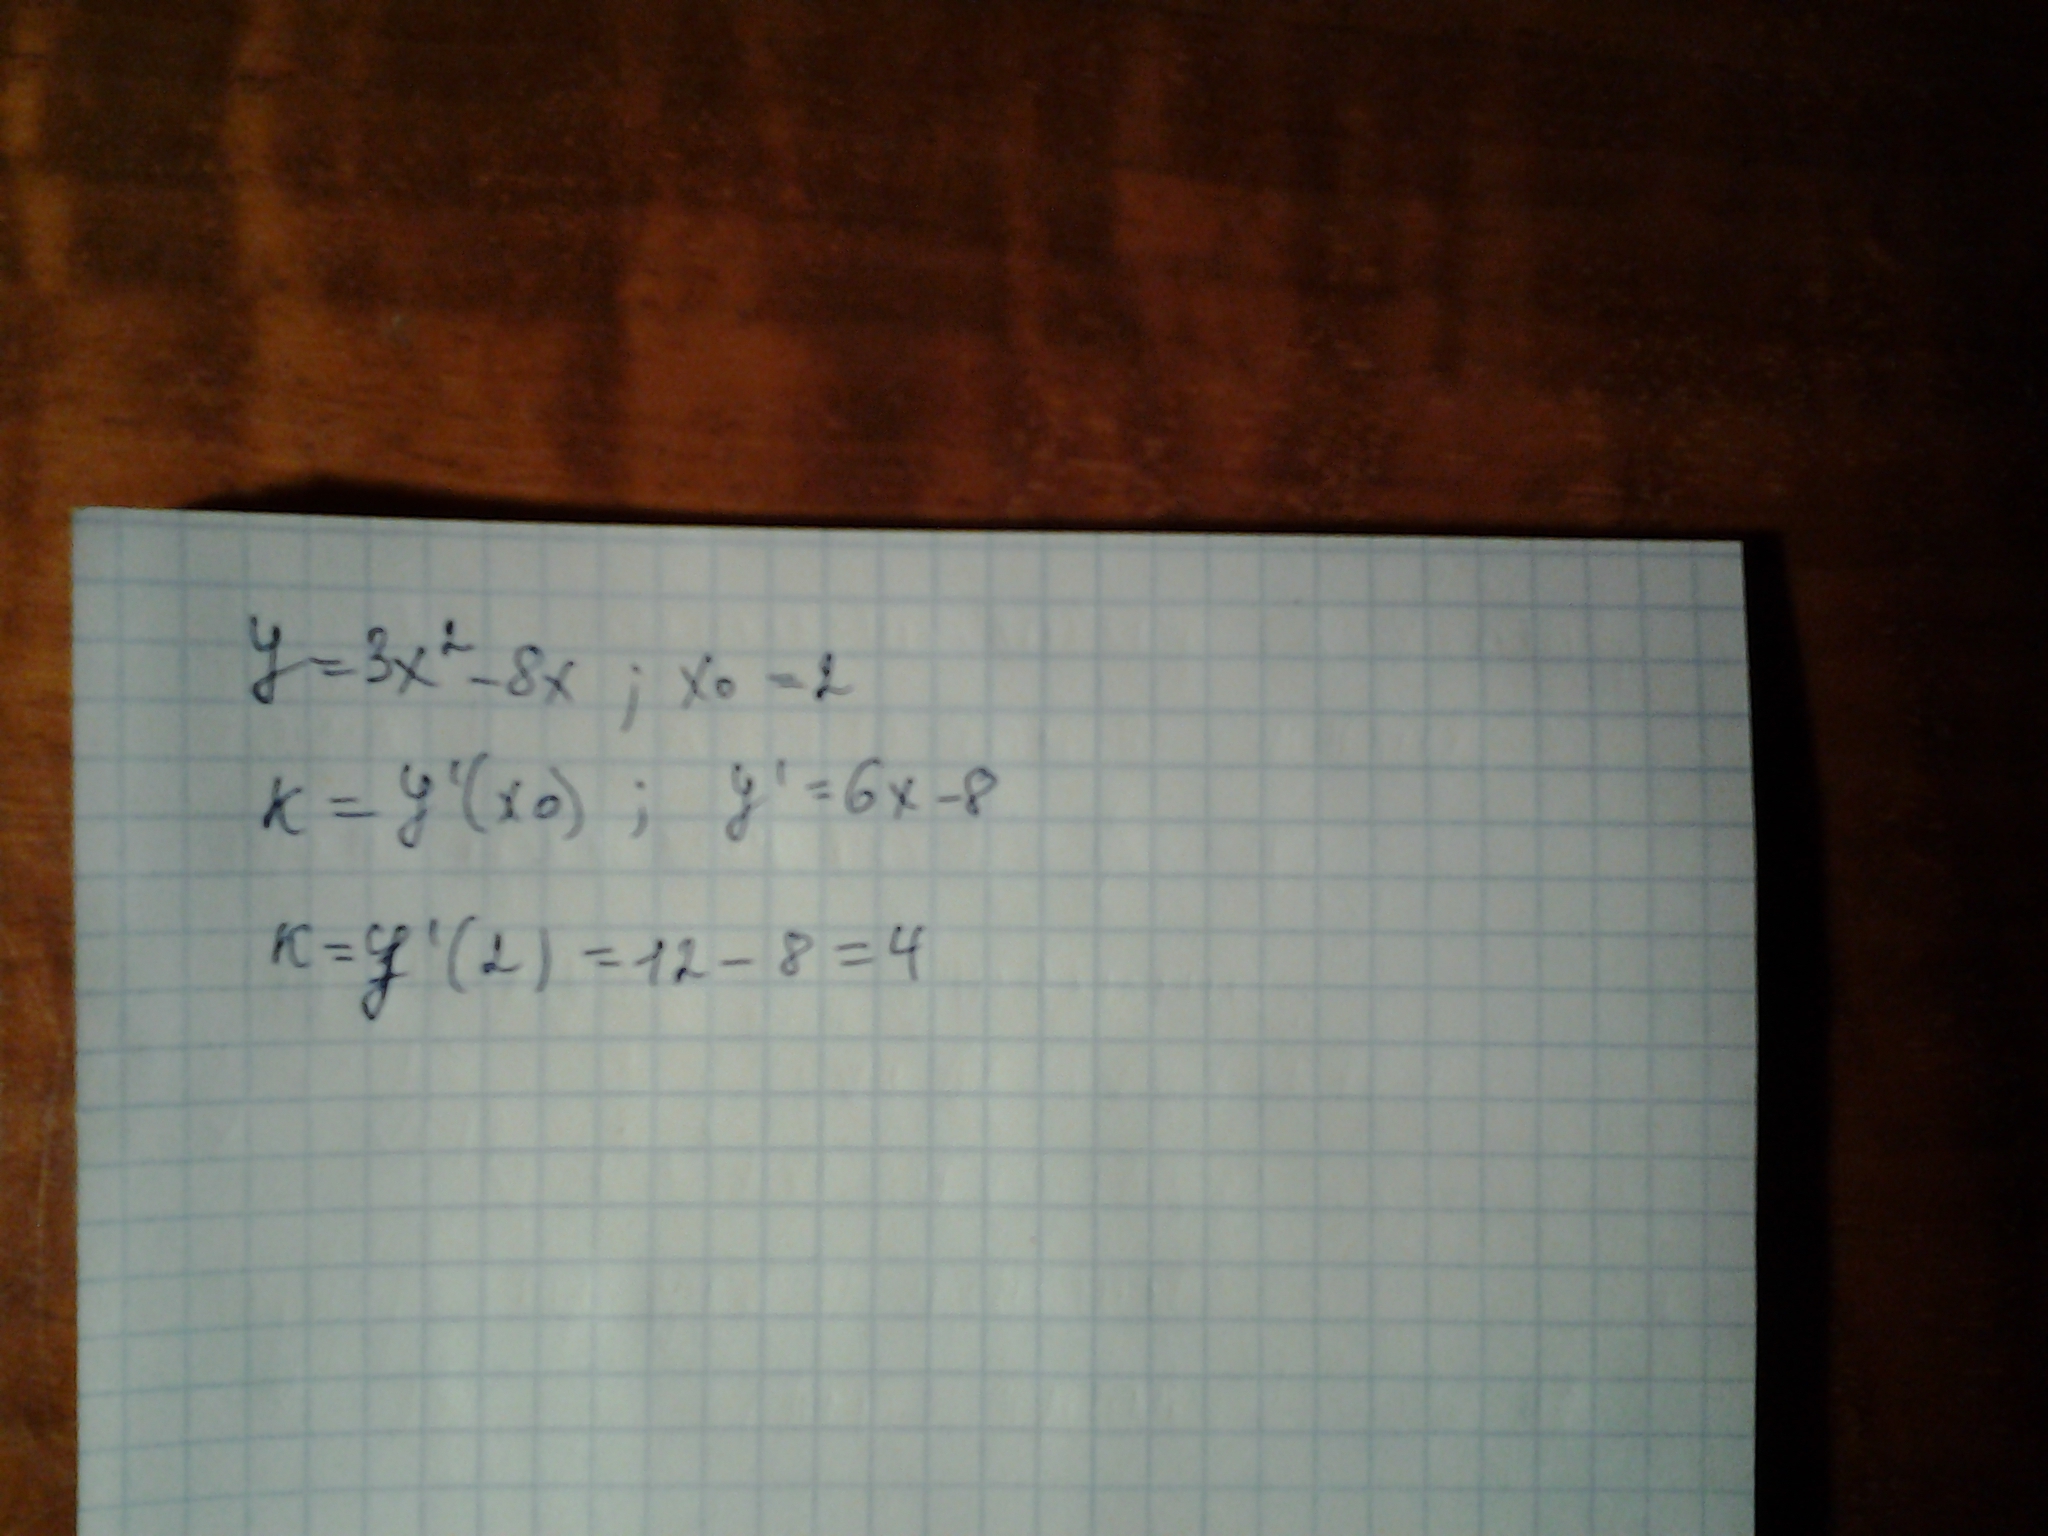 y = 3x² - 8x ; x₀ = 2
к = y'(x₀) ; y' = 6x - 8
к = y'(2) = 12 - 8 = 4